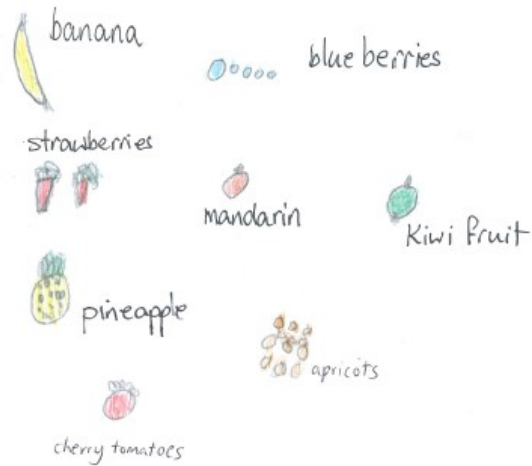 banana
blue berries
strawberries
mandarin
Kiwi fruit
pineapple
apricots
cherry tomatoes